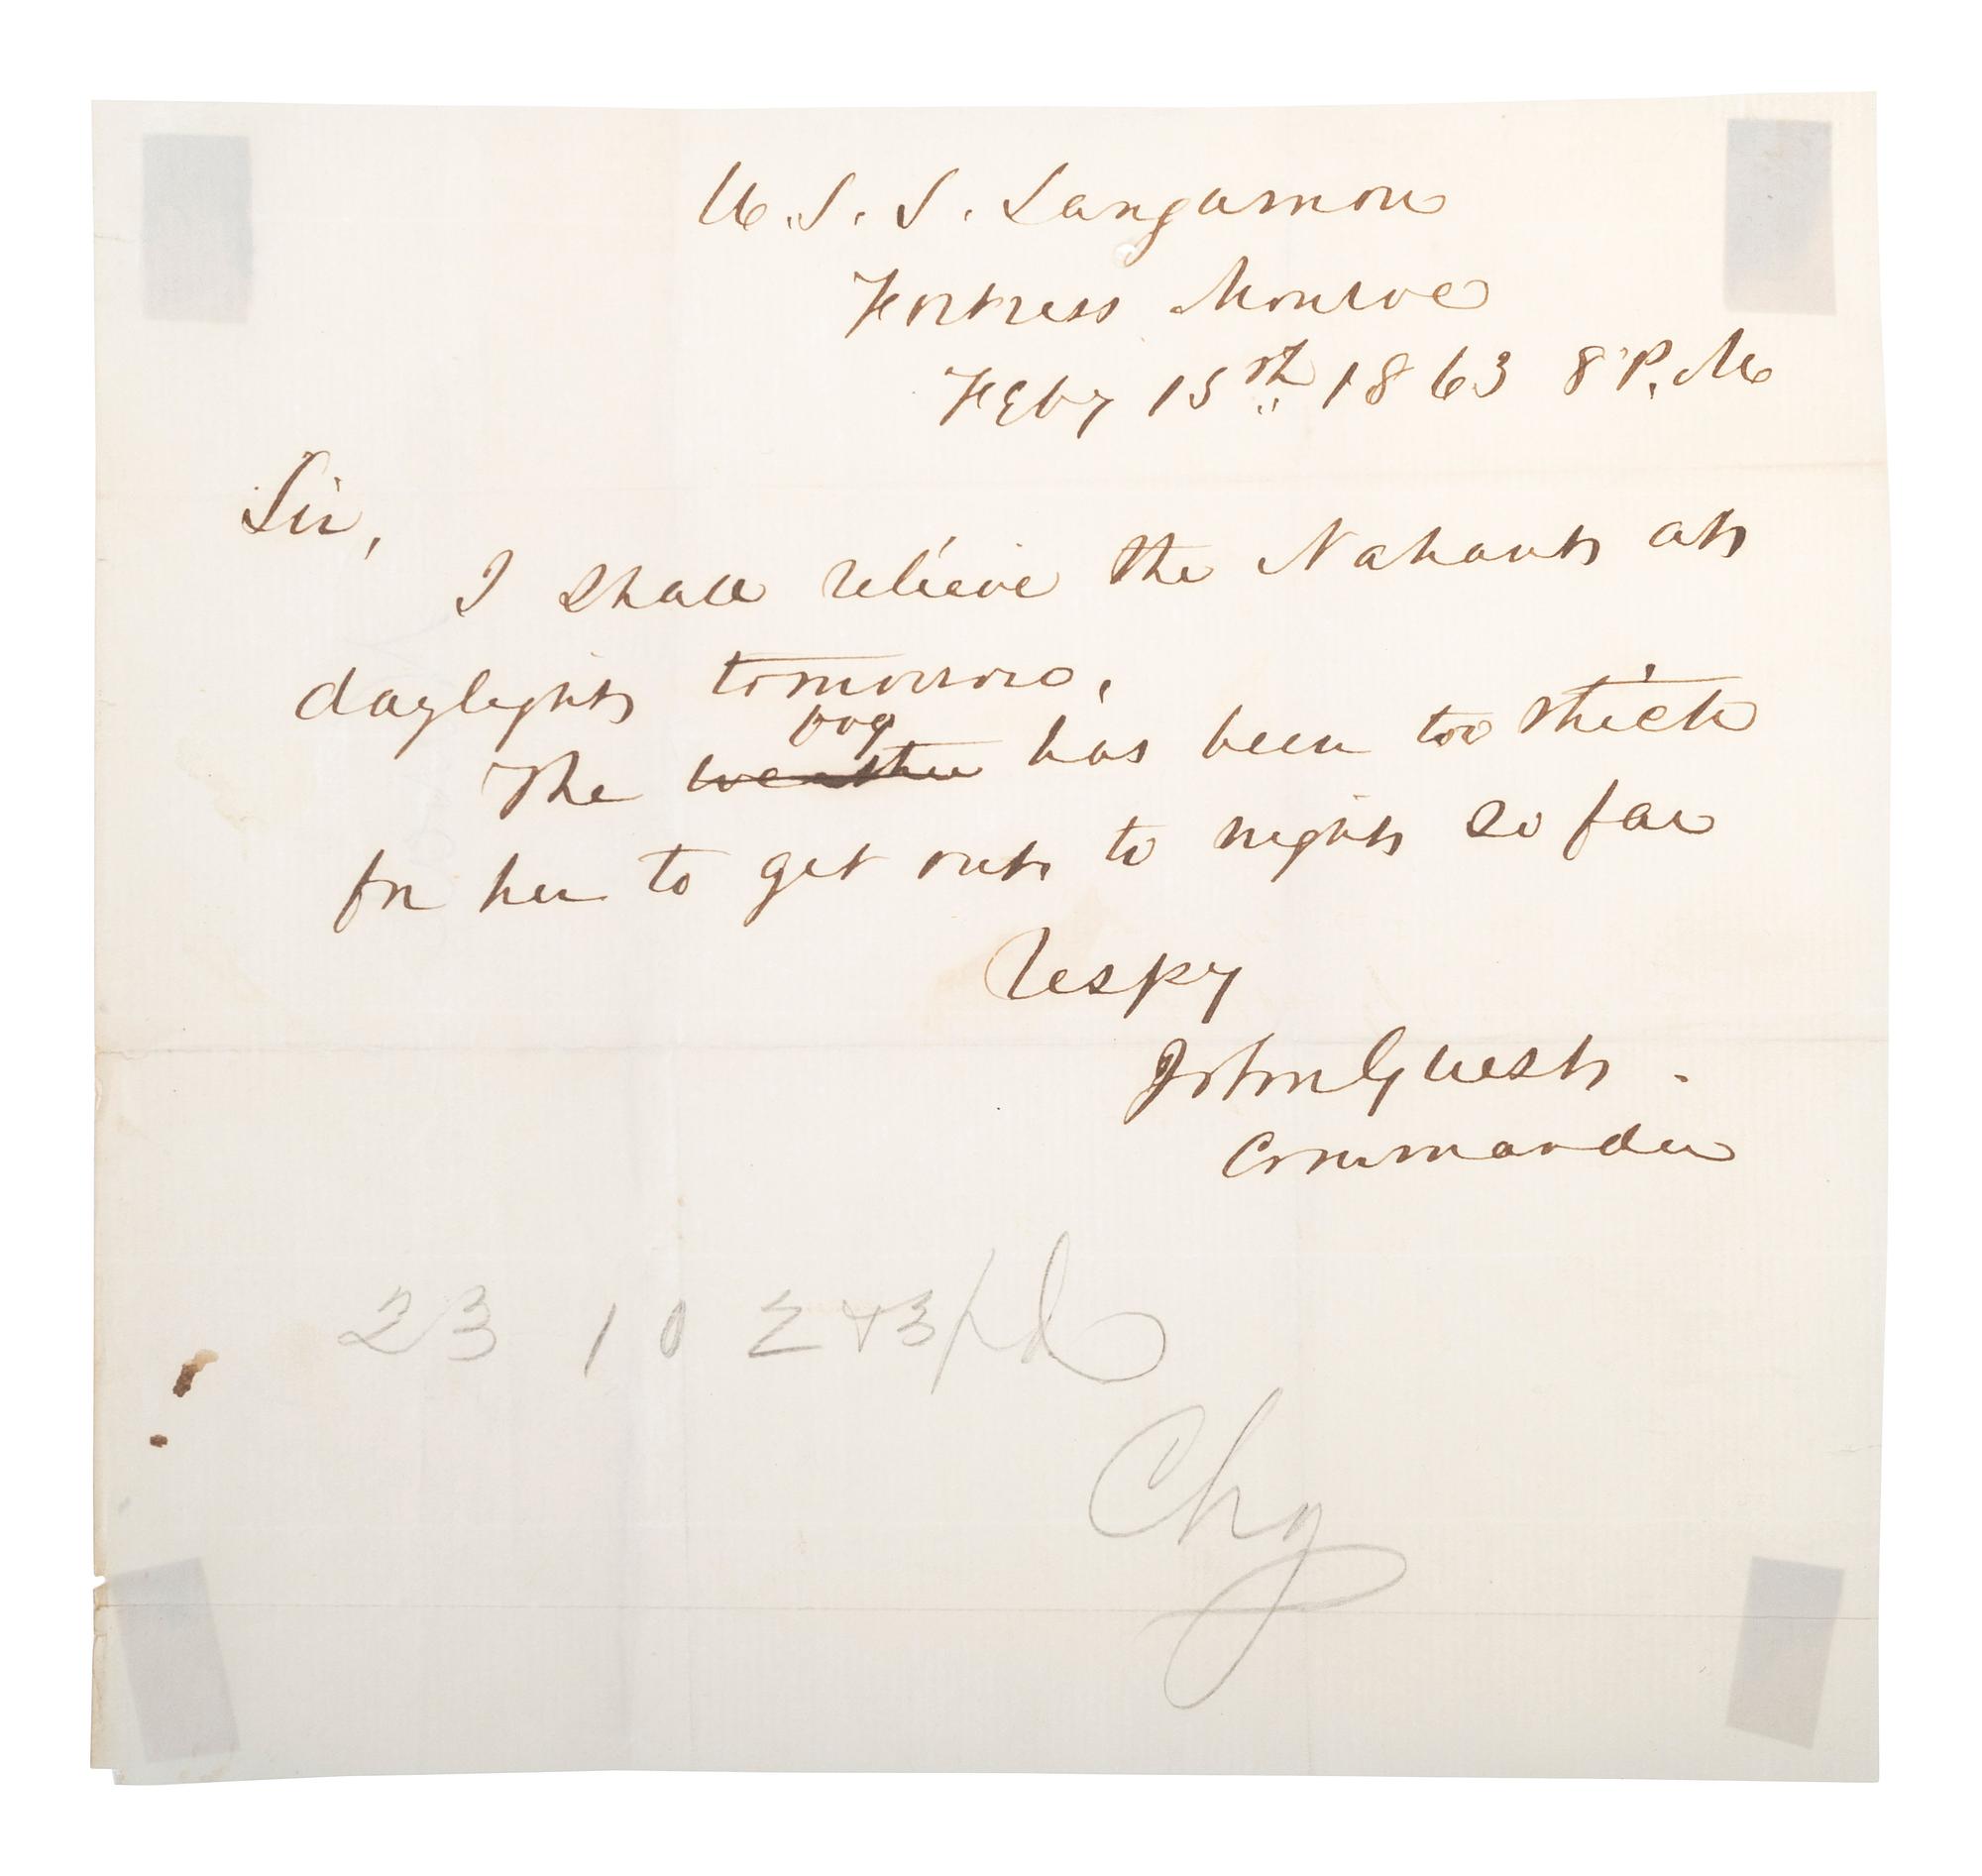 U.S.S. Sangamon
Fortress Monroe
Feby 15th 1863 8 P.M
Sir,
I shall relieve the Nahant at
daylight tomorrow.
fog
The weather has been too thick
for her to get out to night so far
Respy
John Guest.
Commander
23 10
Chg